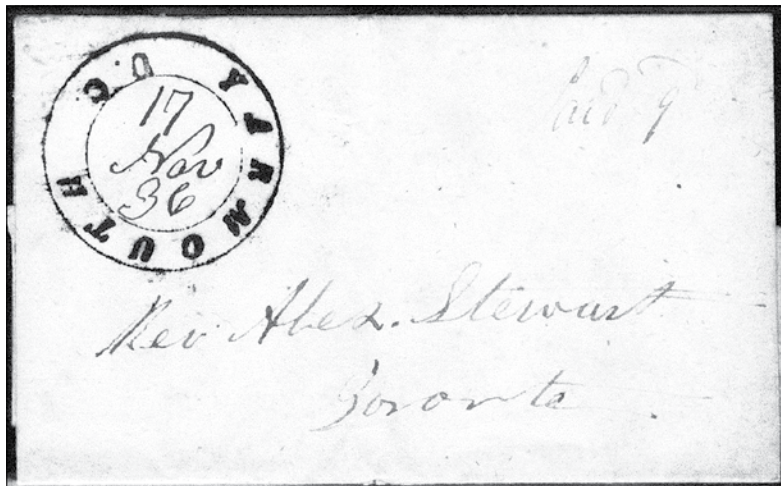 YARMOUTH U C
17
Nov
36
Paid 9
Rev Alex. Stewart
Toronto